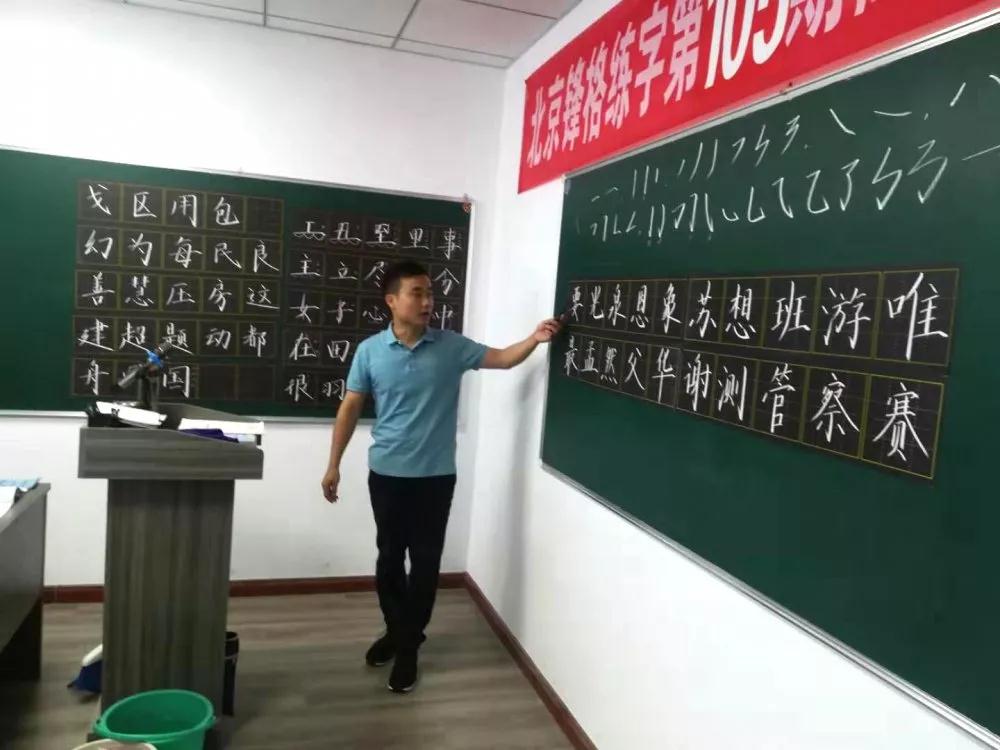 北京锋格练字第105期
戈区用包
幻为每民良
善慧压房这
建超题动都
舟国
丑坚里事
主立尽分
女子心中
在回
很羽
要光泉恩象苏想班游唯
最孟然父华谢测管察赛